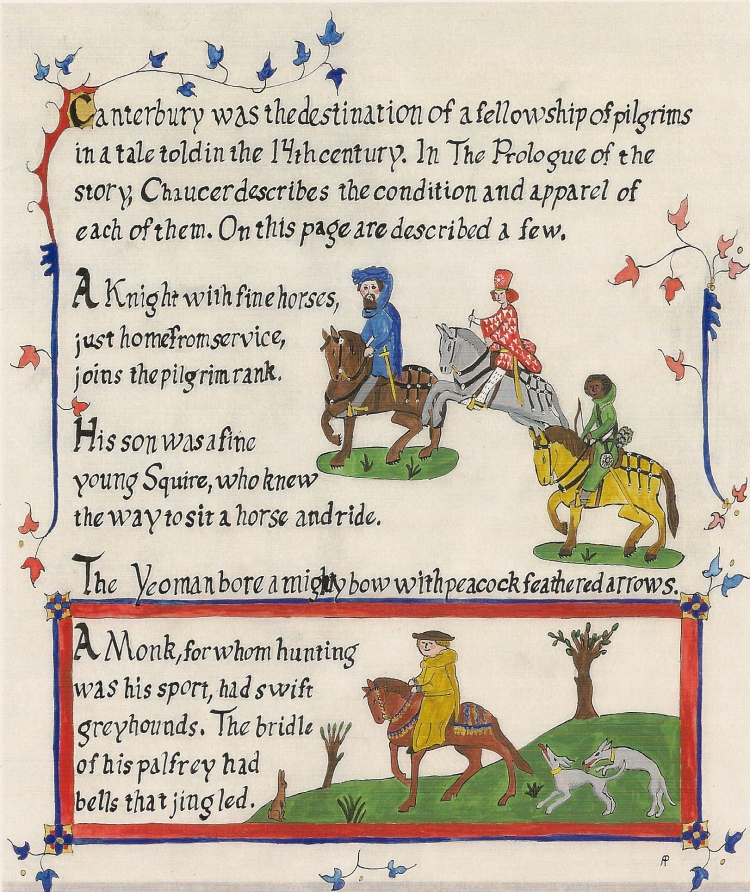 Canterbury was the destination of a fellowship of pilgrims
in a tale told in the 14th century. In The Prologue of the
story, Chaucer describes the condition and apparel of
each of them. On this page are described a few.
A Knight with fine horses,
just home from service,
joins the pilgrim rank.
His son was a fine
young Squire, who knew
the way to sit a horse and ride.
The Yeoman bore a mighty bow with peacock feathered arrows.
A Monk, for whom hunting
was his sport, had swift
greyhounds. The bridle
of his palfrey had
bells that jingled.